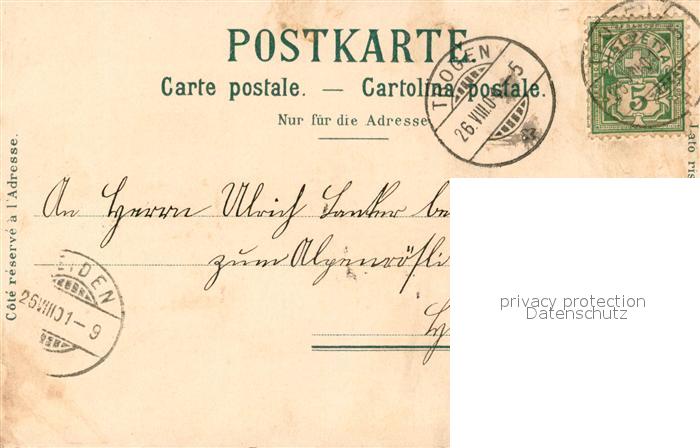 POSTKARTE.
Carte postale. — Cartolina postale.
Nur für die Adresse
TROGEN
26.VIII.0 5
HELVETIA
5
Côté réservé à l'Adresse.
Lato ris
An Herrn Ulrich be
zum Alpenrösli
EIDEN
26VIII01-9
privacy protection
Datenschutz